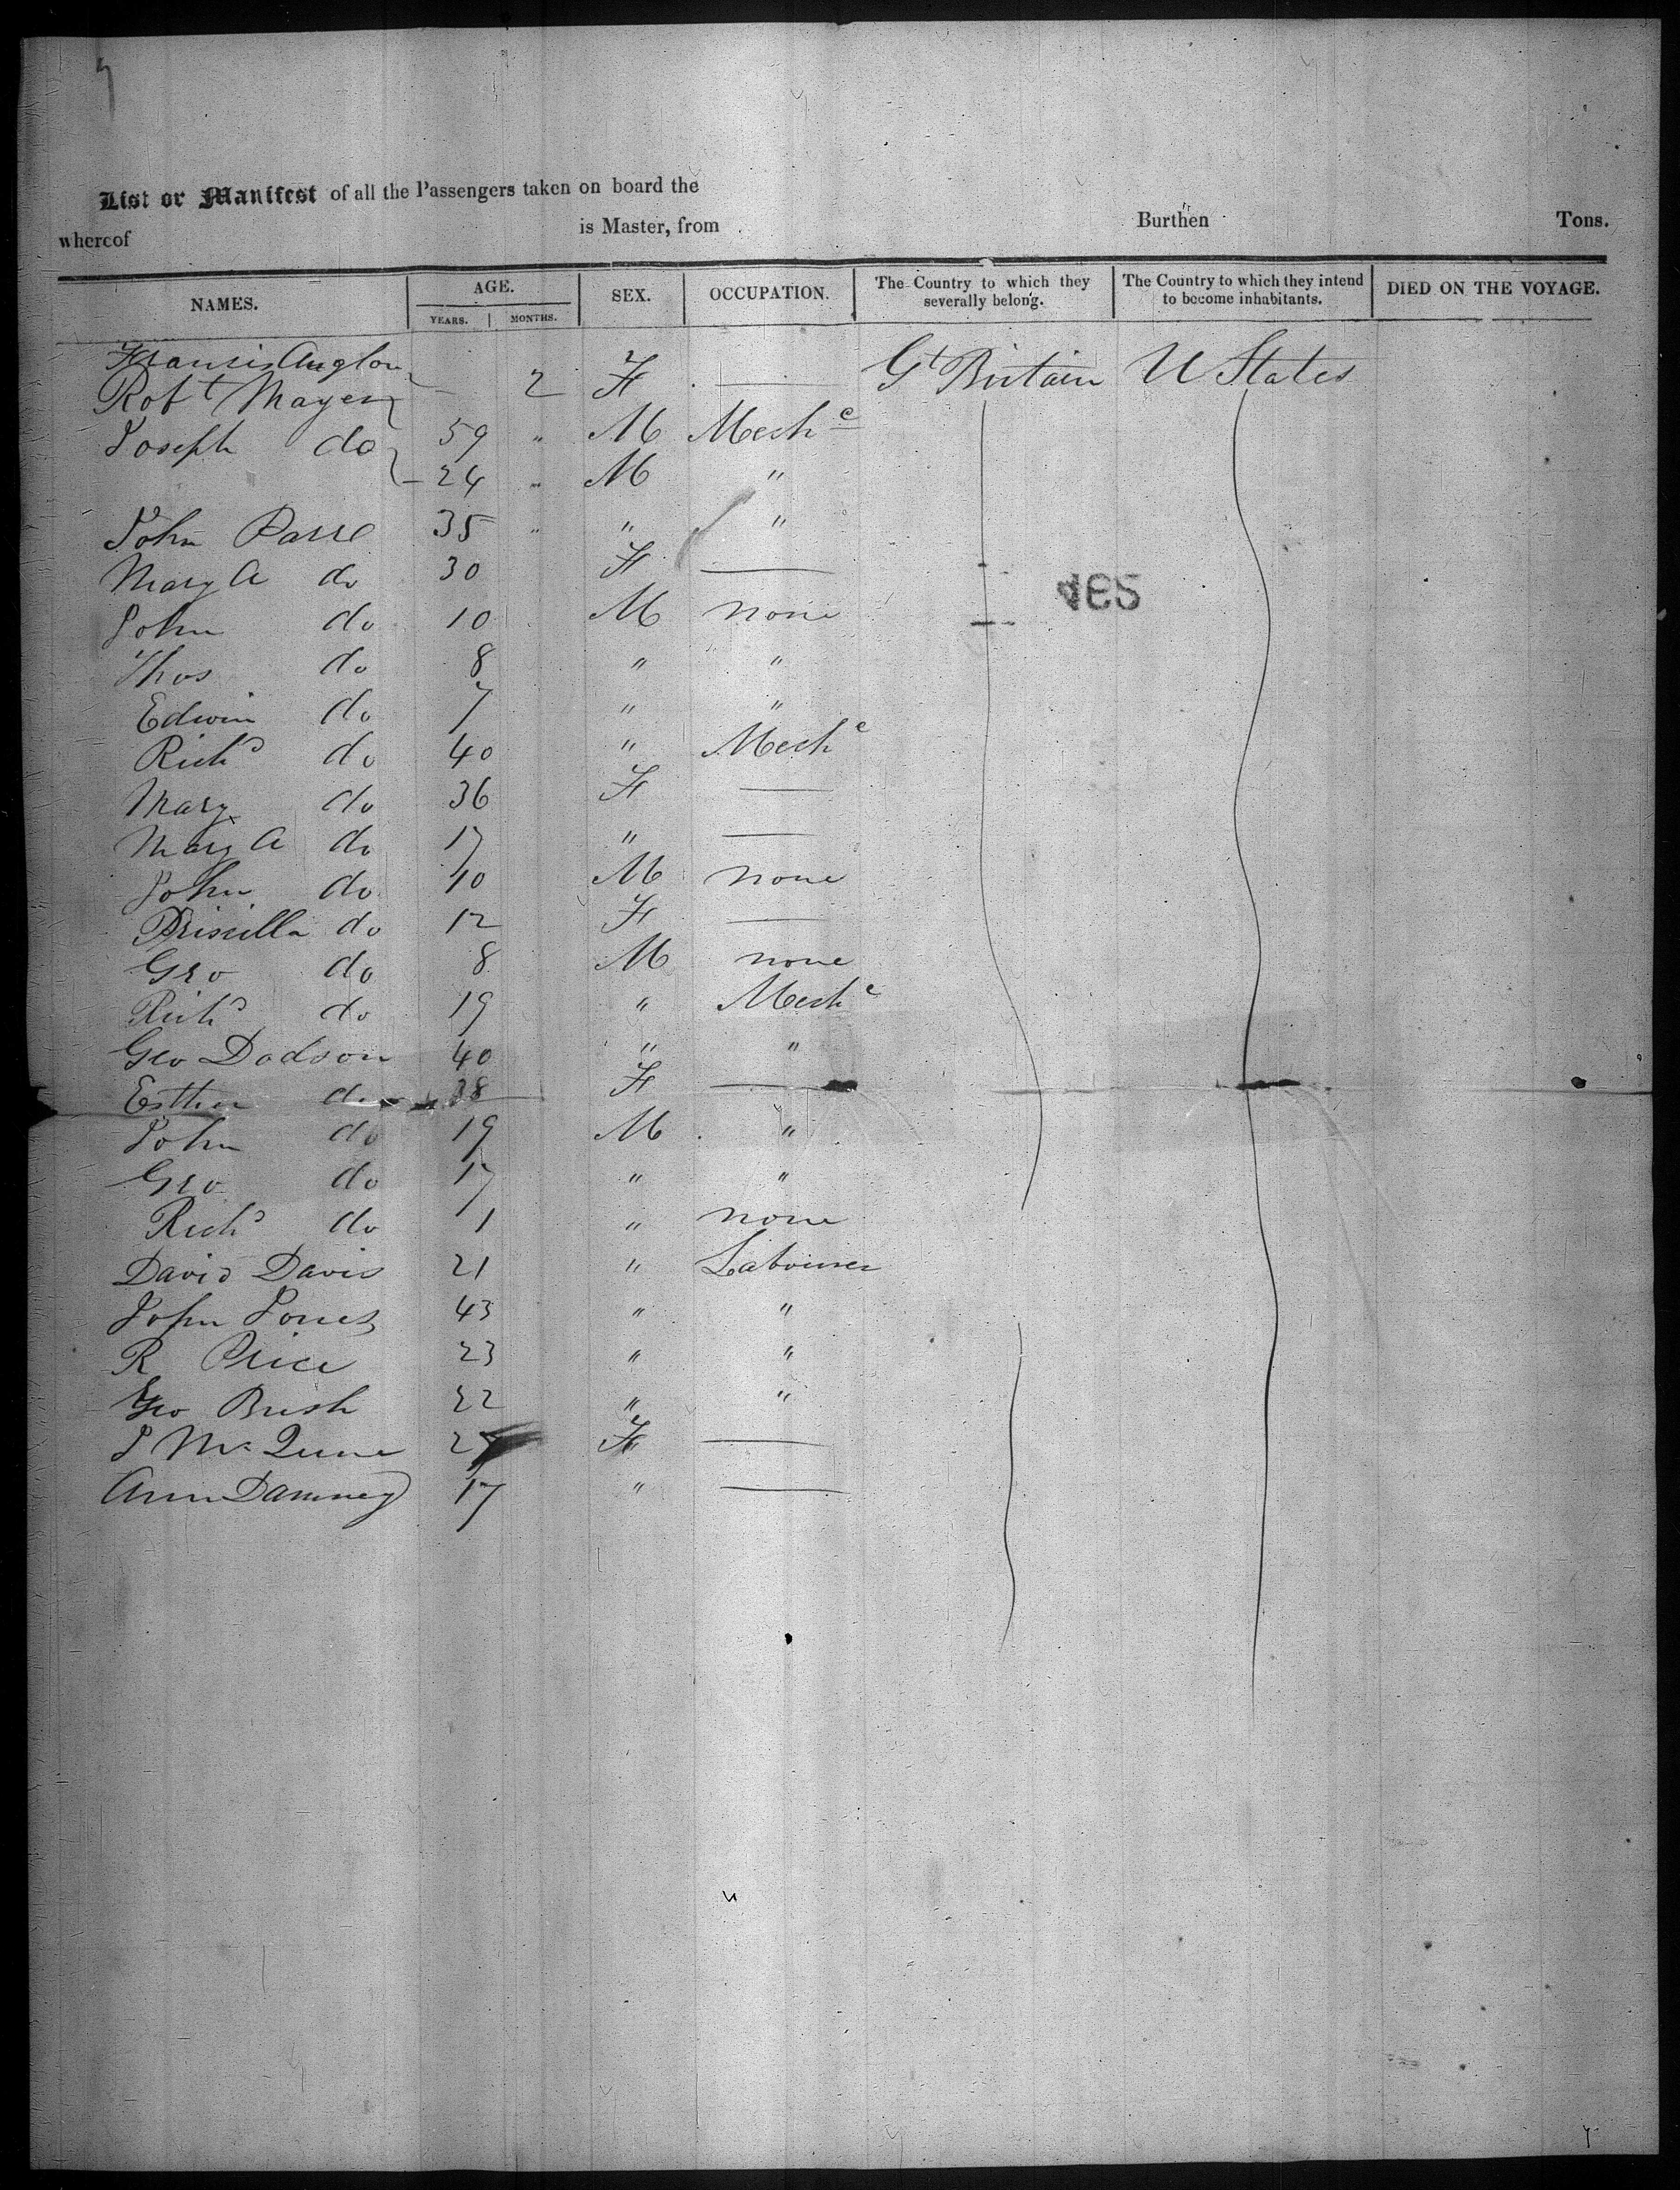 List or Manifest of all the Passengers taken on board the
whereof is Master, from Burthen Tons.
NAMES. AGE. YEARS. MONTHS. SEX. OCCUPATION. The Country to which they severally belong. The Country to which they intend to become inhabitants. DIED ON THE VOYAGE.
Francis 2 F — Gt Britain U States
Robt Mayer 59 " M Mechc
Joseph do 24 " M "
John Passe 35 " " "
Mary A do 30 F —
John do 10 M none
Thos do 8 " "
Edwin do 7 " "
Richd do 40 " Mechc
Mary do 36 F —
Mary A do 17 " —
John do 10 M none
Priscilla do 12 F —
Geo do 8 M none
Richd do 19 " Mechc
Geo Dodson 40 " "
Esther do 38 F —
John do 19 M "
Geo do 17 " "
Richd do 1 " none
David Davis 21 " Labourer
John Jones 43 " "
R Price 23 " "
Geo Bush 22 " "
J Mc Qune F —
Ann Damney 17 " —